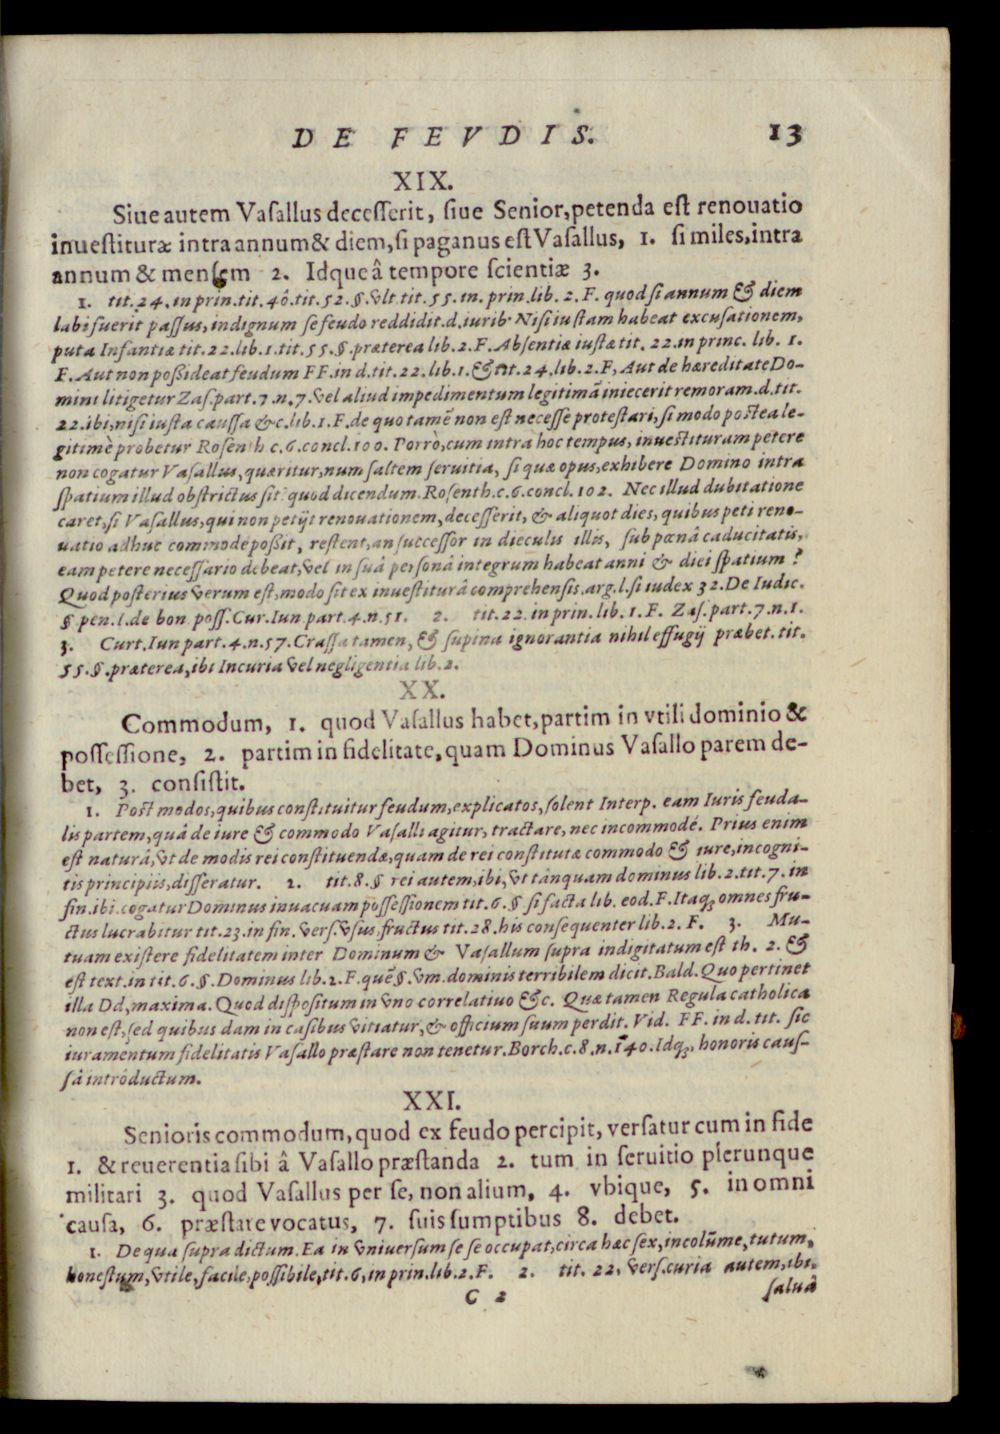 DE FEVDIS. 13
XIX.
Siue autem Vasallus decesserit, siue Senior, petenda est renouatio
inuestituræ intra annum & diem, si paganus est Vasallus, 1. si miles, intra
annum & mensem 2. Idque â tempore scientiæ 3.
1. tit. 24. in prin. tit. 40. tit. 52. §. vlt. tit. 55. in. prin. lib. 2. F. quod si annum & diem
labi fuerit passus, indignum se feudo reddidit. d. iurib. Nisi iustam habeat excusationem,
puta Infantiæ tit. 22. lib. 1. tit. 55. §. præterea lib. 2. F. Absentiæ iustæ tit. 22. in princ. lib. 1.
F. Aut non poßideat feudum FF. in d. tit. 22. lib. 1. & tit. 24. lib. 2. F, Aut de hæreditate Do-
mini litigetur Zas. part. 7. n. 7. vel aliud impedimentum legitimâ iniecerit remoram. d. tit.
22. ibi, nisi iusta caussa &c. lib. 1. F. de quo tamẽ non est necesse protestari, si modo postea le-
gitimè probetur Rosenth c. 6. concl. 100. Porrò, cum intra hoc tempus, inuestituram petere
non cogatur Vasallus, quæritur, num saltem seruitia, si quæ opus, exhibere Domino intra
spatium illud obstrictus sit? quod dicendum. Rosenth. c. 6. concl. 102. Nec illud dubitatione
caret, si Vasallus, qui non petijt renouationem, decesserit, & aliquot dies, quibus peti reno-
uatio adhuc commode poßit, restent, an successor in dieculis illis, sub pœnâ caducitatis,
eam petere necessario debeat, vel in suâ personâ integrum habeat anni & diei spatium?
Quod posterius verum est, modo sit ex inuestiturâ comprehensis. arg. l. si iudex 32. De Iudic.
§ pen. l. de bon poss. Cur. Iun part. 4. n. 51. 2. tit. 22. in prin. lib. 1. F. Zas. part. 7. n. 1.
3. Curt. Iun part. 4. n. 57. Crassa tamen, & supina ignorantia nihil effugij præbet. tit.
55. §. præterea, ibi Incuria vel negligentia lib. 2.
XX.
Commodum, 1. quod Vasallus habet, partim in vtili dominio &
possessione, 2. partim in fidelitate, quam Dominus Vasallo parem de-
bet, 3. consistit.
1. Post modos, quibus constituitur feudum, explicatos, solent Interp. eam Iuris feuda-
lis partem, quâ de iure & commodo Vasalli agitur, tractare, nec incommodé. Prius enim
est naturâ, vt de modis rei constituendæ, quam de rei constitutæ commodo & iure, incogni-
tis principiis, disseratur. 2. tit. 8. § rei autem, ibi, vt tanquam dominus lib. 2. tit. 7. in
fin. ibi. cogatur Dominus in vacuam possessionem tit. 6. § si facta lib. eod. F. Itaq; omnes fru-
ctus lucrabitur tit. 23. in fin. vers. vsus, fructus tit. 28. his consequenter lib. 2. F. 3. Mu-
tuam existere fidelitatem inter Dominum & Vasallum supra indigitatum est th. 2. &
est text. in tit. 6. §. Dominus lib. 2. F. quẽ §. vm. dominis terribilem dicit. Bald. Quo pertinet
illa Dd, maxima. Quod dispositum in vno correlatiuo &c. Quæ tamen Regula catholica
non est, sed quibus dam in casibus vitiatur, & officium suum perdit. Vid. FF. in d. tit. sic
iuramentum fidelitatis Vasallo præstare non tenetur. Borch. c. 8. n. 140. Idq;, honoris caus-
sâ introductum.
XXI.
Senioris commodum, quod ex feudo percipit, versatur cum in fide
1. & reuerentia sibi â Vasallo præstanda 2. tum in seruitio plerunque
militari 3. quod Vasallus per se, non alium, 4. vbique, 5. in omni
causa, 6. præstare vocatus, 7. suis sumptibus 8. debet.
1. De qua supra dictum. Ea in vniuersum se se occupat, circa hæc sex, incolũme, tutum,
honestum, vtile, facile, possibile, tit. 6, in prin. lib. 2. F. 2. tit. 22, vers. curia autem, ibi,
C 2 saluâ